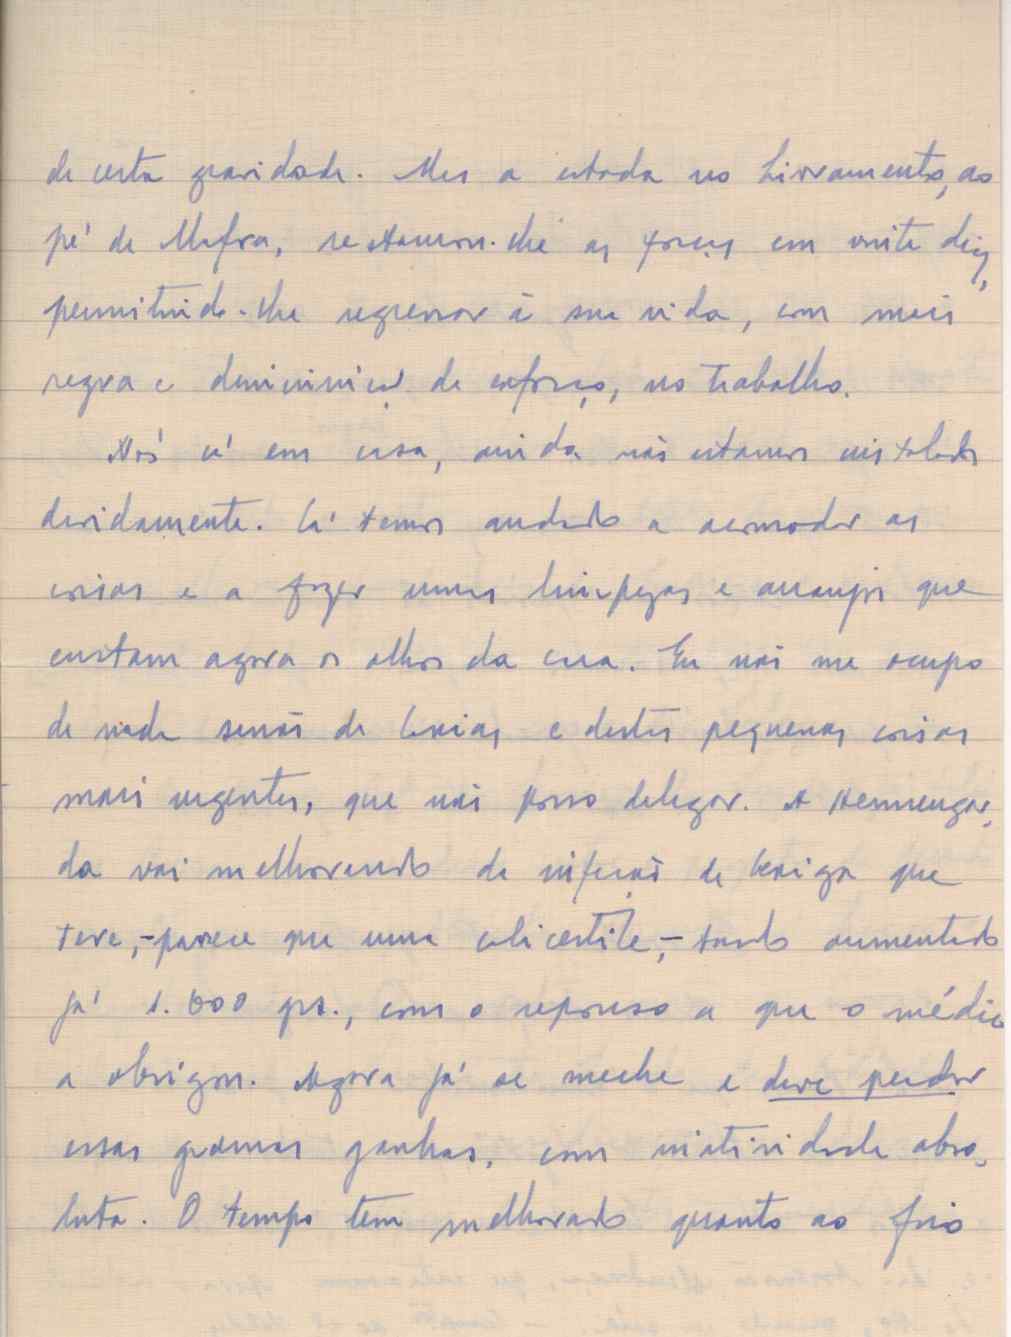 de certa gravidade. Mas a estada no Livramento, ao
pé de Mafra, restauron-lhe as forças em vinte dias,
permitindo-lhe regressar à sua vida, com mais
regra e diminuição de esforço, no trabalho.
Nós cá em casa, ainda não estamos instalados
devidamente. Cá temos andado a acomodar as
coisas e a fazer umas limpezas e arranjos que
custam agora os olhos da cara. Eu não me ocupo
de nada senão de e destas pequenas coisas
mais urgentes, que não posso delegar. A Hermengar-
da vai melhorando da infecção de bexiga que
teve, - parece que uma colicistite, - tendo aumentado
já 1.600 grs., com o repouso a que o médico
a obrigou. Agora já se meche e deve perder
essas gramas ganhas, com inatividade abso-
luta. O tempo tem melhorado quanto ao frio